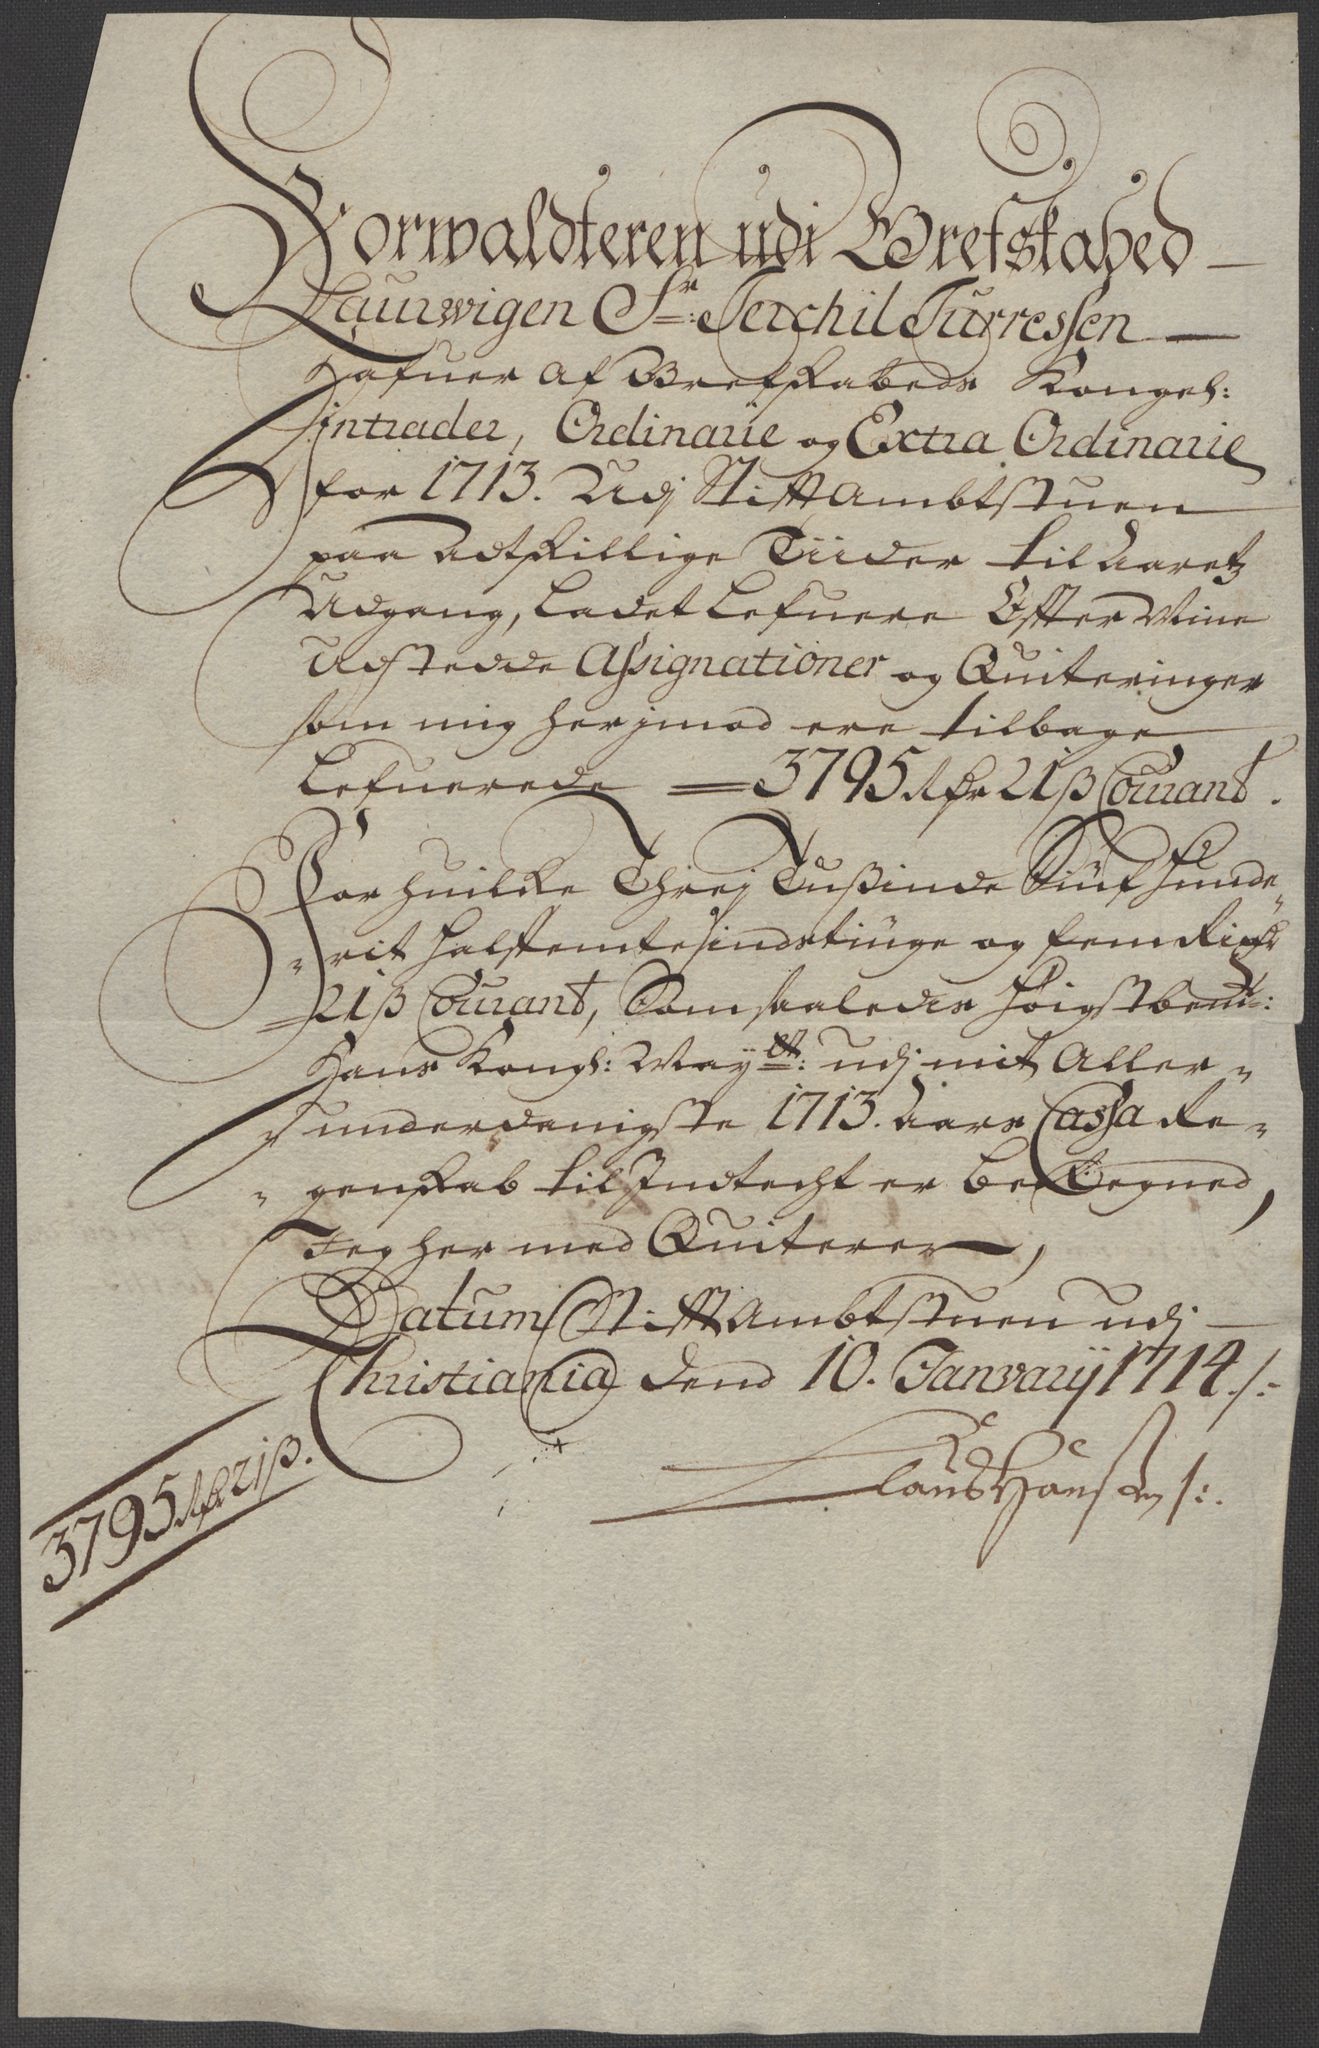 Forwaldteren udi Grefskabed
Laurwigen Sr: Terchil Turressen
Hafuer af Grefskabeds Kongel:
intrader, Ordinarie og Extra Ordinarie
for 1713. Udj Stifftambtstuen
paa Adtskillige Tiider til Aaretz
Udgang, Ladet Lefuere Effter Mine
Udstedde Assignationer og Quiteringer
som mig herjmod ere tilbage
Lefuerede 3795 Rdr 21 ß Courant.
For huilcke Threj Tußinde Siuf Hunde¬
rit Halffemtesindstiuge og fem Rixdr
21 ß Courant, Som saaledis Høigstbemte:
Hans Kongl: Mayst: udj mit Aller¬
underdanigste 1713. Aars Cassa Re¬
genskab til Indtecht er beRegned,
Jeg her med Quiterer,
Datum Stifftambtstuen udj
Christiania dend 10. Janvarij 1714 /:
Claus Hansen /:
3795 Rdr 21 ß.